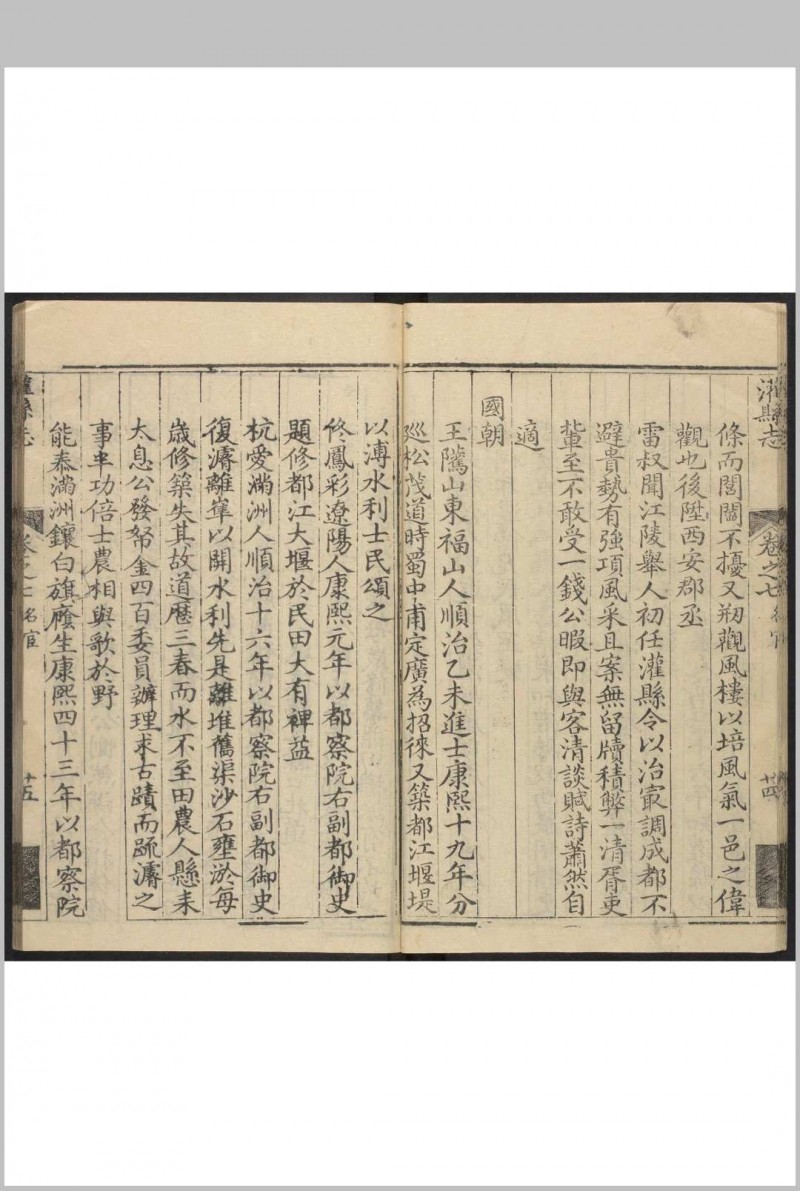 灌縣志
卷之七
名官
廿四
條而閭閻不擾又剏觀風樓以培風氣一邑之偉
觀也後陞西安郡丞
雷叔聞江陵舉人初任灌縣令以治㝡調成都不
避貴勢有強項風采且案無留牘積弊一清胥吏
輩至不敢受一錢公暇即與客清談賦詩蕭然自
適
國朝
王隲山東福山人順治乙未進士康熙十九年分
廵松茂道時蜀中甫定廣為招徠又築都江堰堤
以溥水利士民頌之
佟鳳彩遼陽人康熙元年以都察院右副都御史
題修都江大堰於民田大有裨益
杭愛滿洲人順治十六年以都察院右副都御史
復濬離堆以開水利先是離堆舊渠沙石壅淤每
歲修築失其故道歷三春而水不至田農人懸耒
太息公發帑金四百委員辦理求古蹟而疏濬之
事半功倍士農相與歌於野
能泰滿洲鑲白旗廕生康熙四十三年以都察院
灌縣志
卷之七
名官
廿五